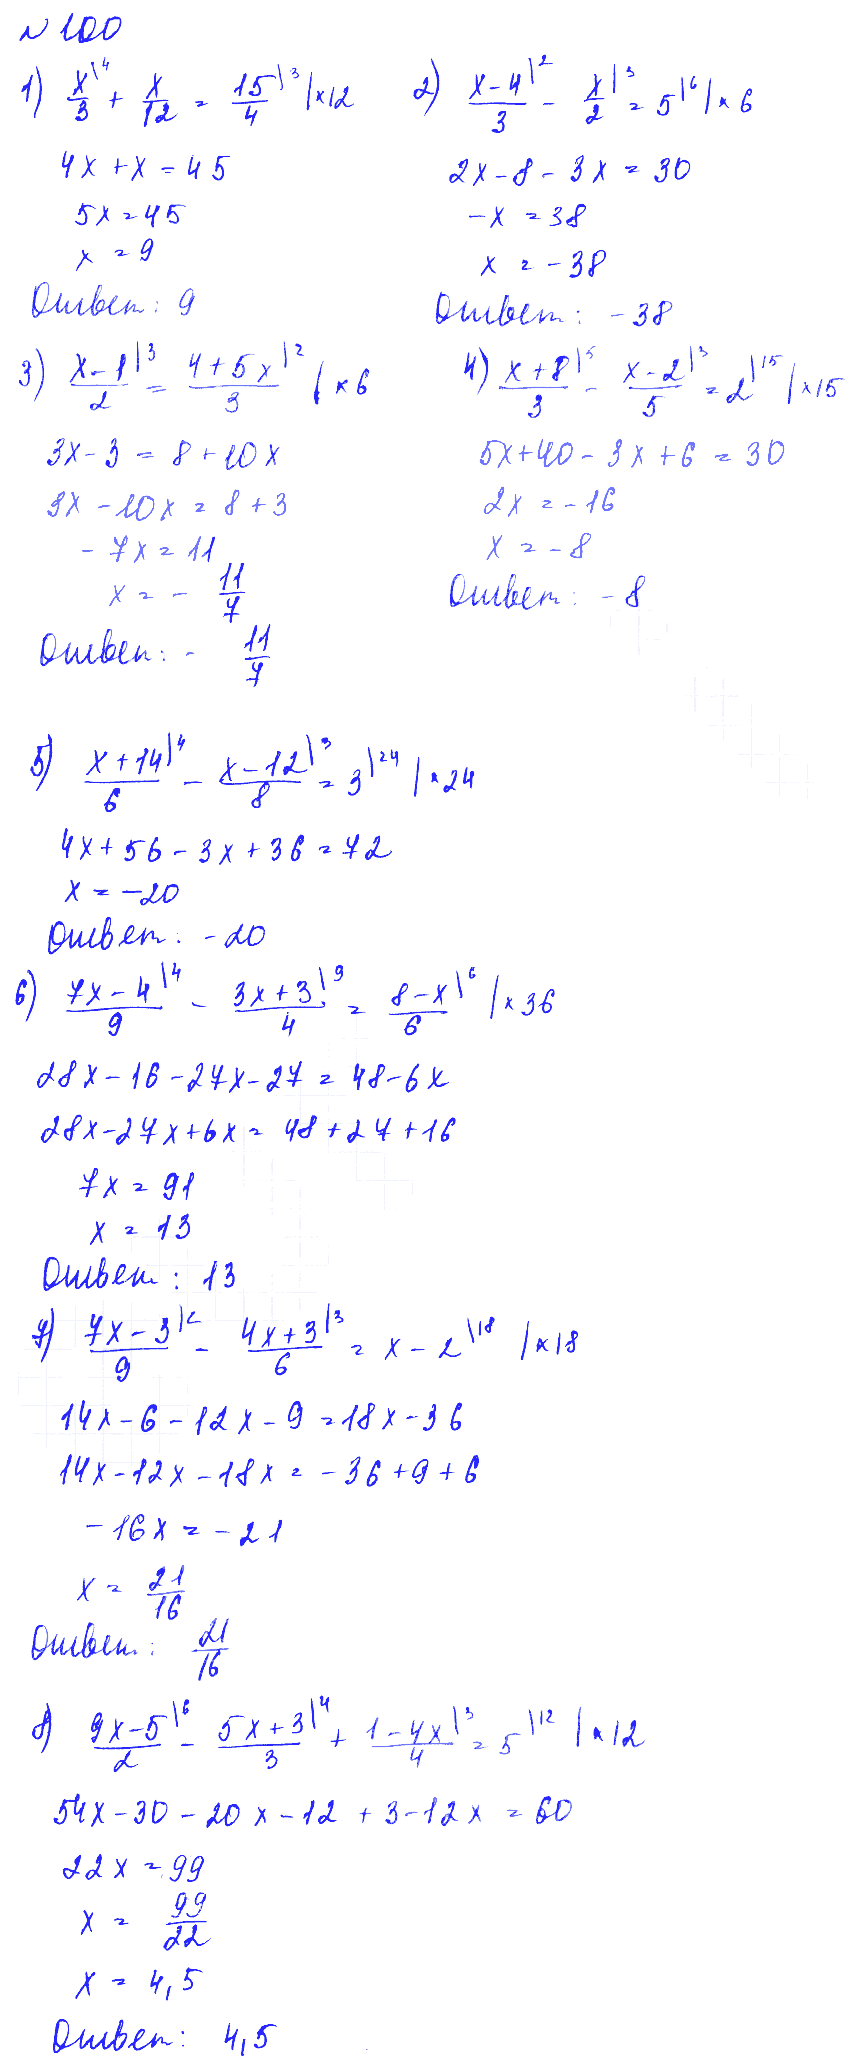 № 100
1) x/3 \4 + x/12 = 15/4 \3 | ×12
4x + x = 45
5x = 45
x = 9
Ответ: 9
2) (x-4)/3 \2 - x/2 \3 = 5 \6 | × 6
2x - 8 - 3x = 30
-x = 38
x = -38
Ответ: -38
3) (x-1)/2 \3 = (4+5x)/3 \2 | × 6
3x - 3 = 8 + 10x
3x - 10x = 8 + 3
- 7x = 11
x = - 11/7
Ответ: - 11/7
4) (x+8)/3 \5 - (x-2)/5 \3 = 2 \15 | ×15
5x+40 - 3x + 6 = 30
2x = -16
x = -8
Ответ: -8
5) (x+14)/6 \4 - (x-12)/8 \3 = 3 \24 | × 24
4x + 56 - 3x + 36 = 72
x = -20
Ответ: -20
6) (7x-4)/9 \4 - (3x+3)/4 \9 = (8-x)/6 \6 | × 36
28x - 16 - 27x - 27 = 48 - 6x
28x - 27x + 6x = 48 + 27 + 16
7x = 91
x = 13
Ответ: 13
7) (7x-3)/9 \2 - (4x+3)/6 \3 = x - 2 \18 | ×18
14x - 6 - 12x - 9 = 18x - 36
14x - 12x - 18x = -36 + 9 + 6
-16x = -21
x = 21/16
Ответ: 21/16
8) (9x-5)/2 \6 - (5x+3)/3 \4 + (1-4x)/4 \3 = 5 \12 | × 12
54x - 30 - 20x - 12 + 3 - 12x = 60
22x = 99
x = 99/22
x = 4,5
Ответ: 4,5